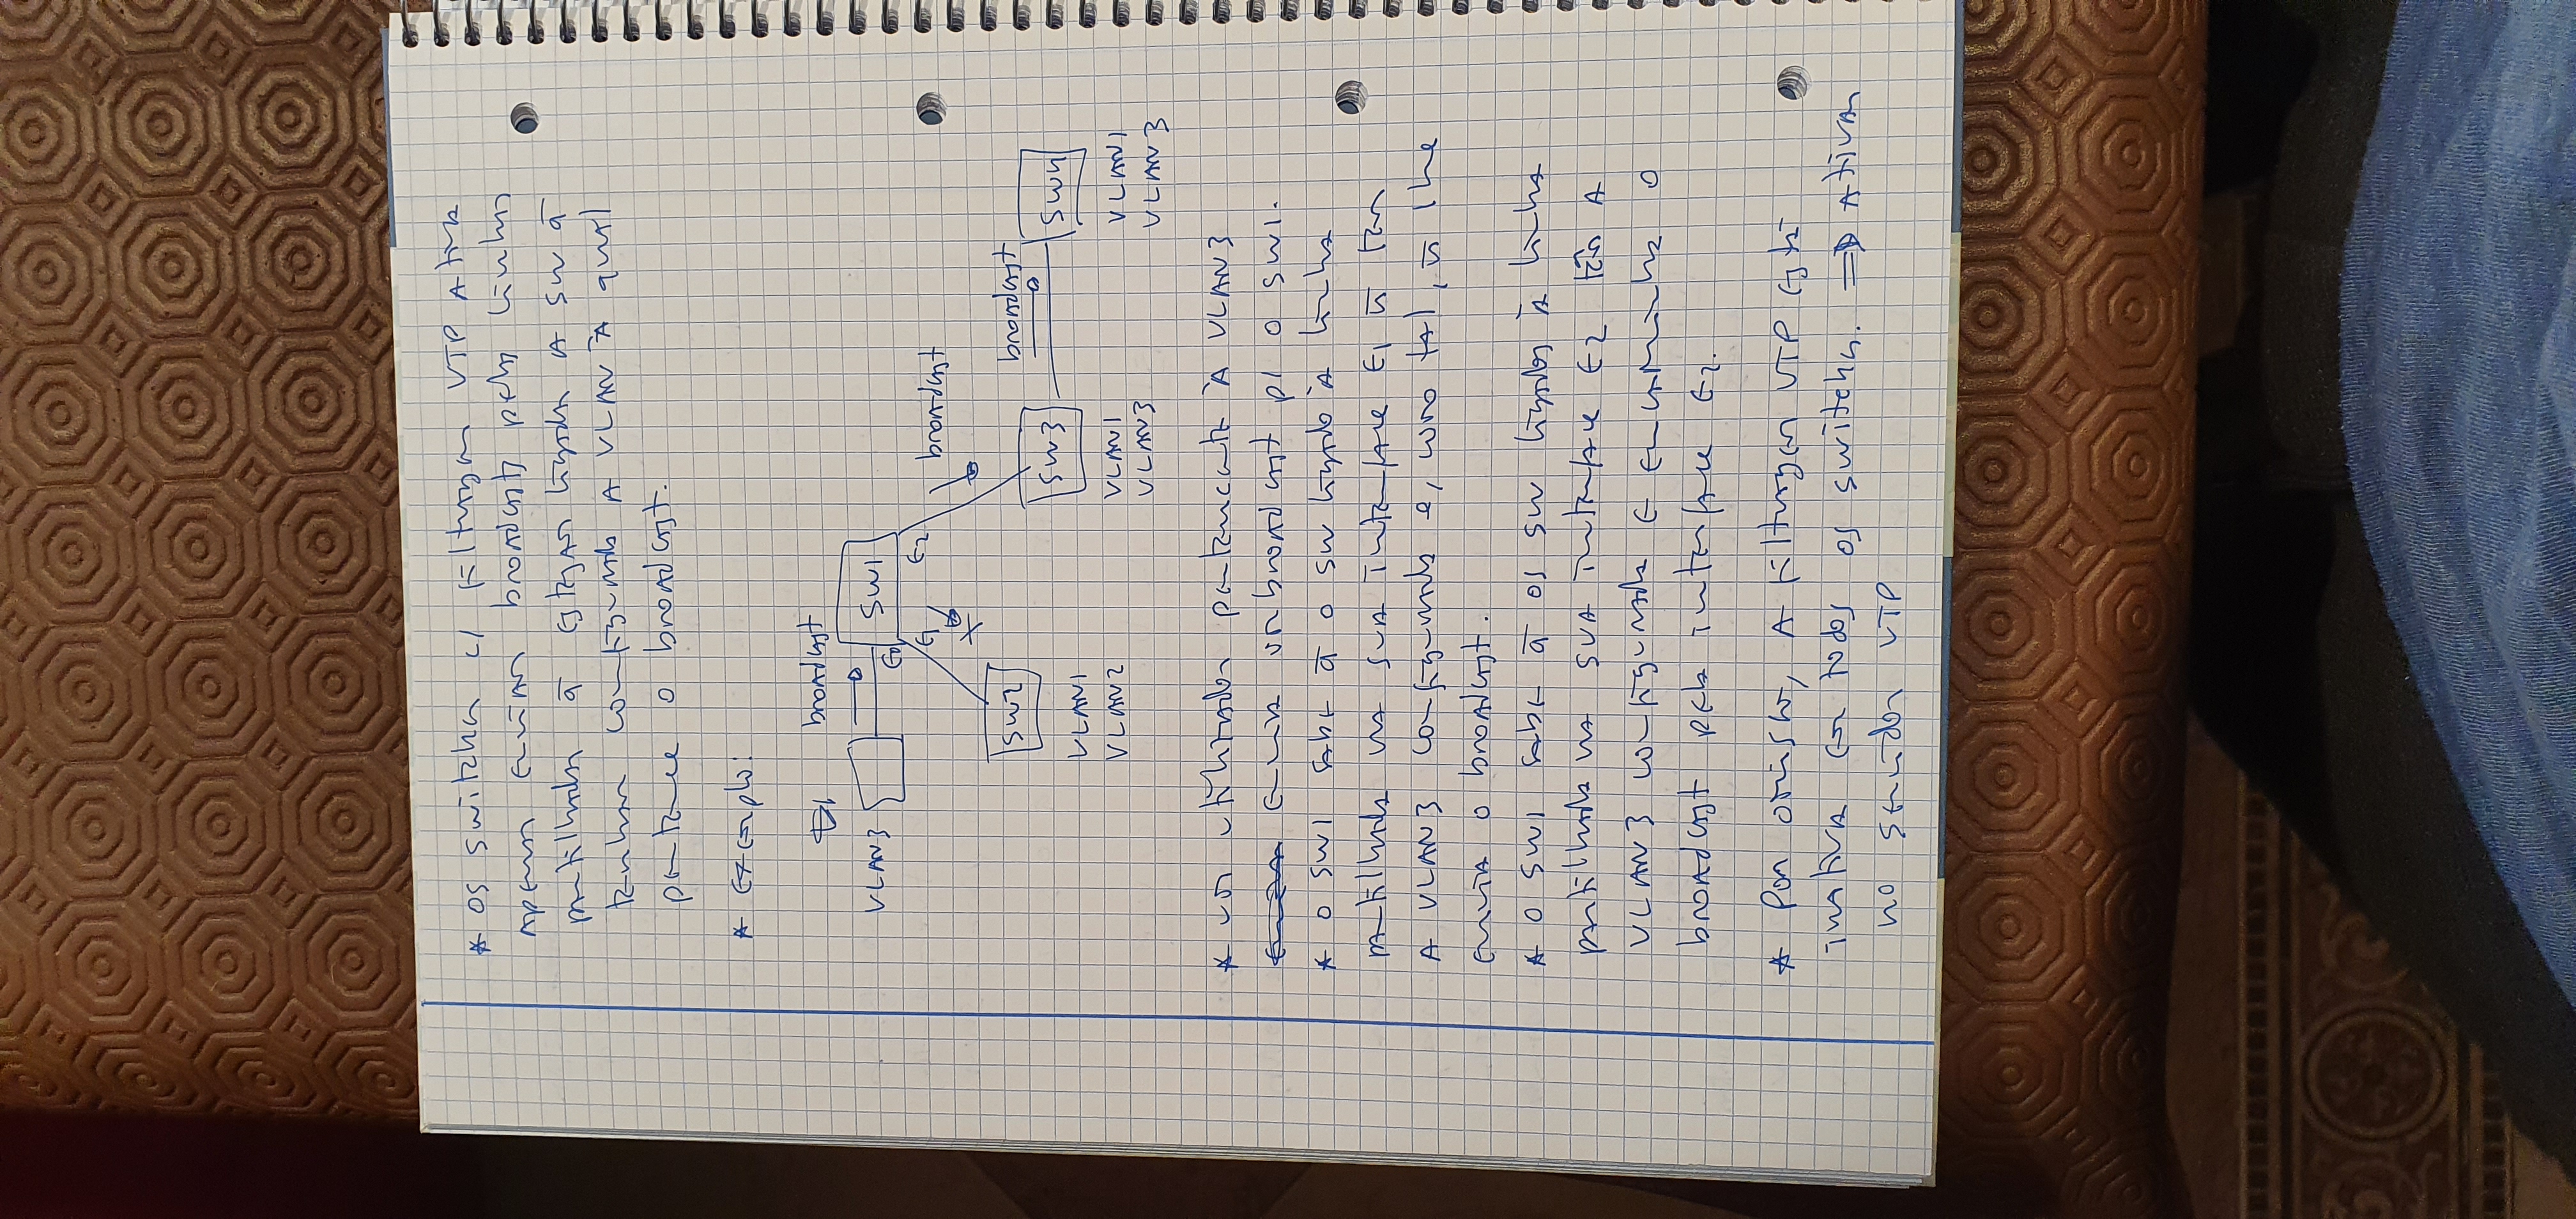 * OS switches c/ filtragem VTP Ativa
apenas enviam broadcasts pelas linhas
partilhadas q̄ estejam ligadas A SW q̄
tenham configurada A VLAN À qual
pertence o broadcast.
* Exemplo:
broadcast
VLAN3
SW1
E0
E1
E2
broadcast
SW2
broadcast
SW3
SW4
VLAN1
VLAN2
VLAN1
VLAN3
VLAN1
VLAN3
* Um utilizador pertencente À VLAN3
envia um broadcast p/ o SW1.
* O SW1 sabe q̄ o SW ligado à linha
partilhada na sua interface E1 ñ tem
A VLAN3 configurada e, como tal, ñ lhe
envia o broadcast.
* O SW1 sabe q̄ os SW ligados à linha
partilhada na sua interface E2 têm A
VLAN3 configurada E encaminha o
broadcast pela interface E2.
* Por omissão, A filtragem VTP está
inativa em todos os switches. => Ativar
no servidor VTP